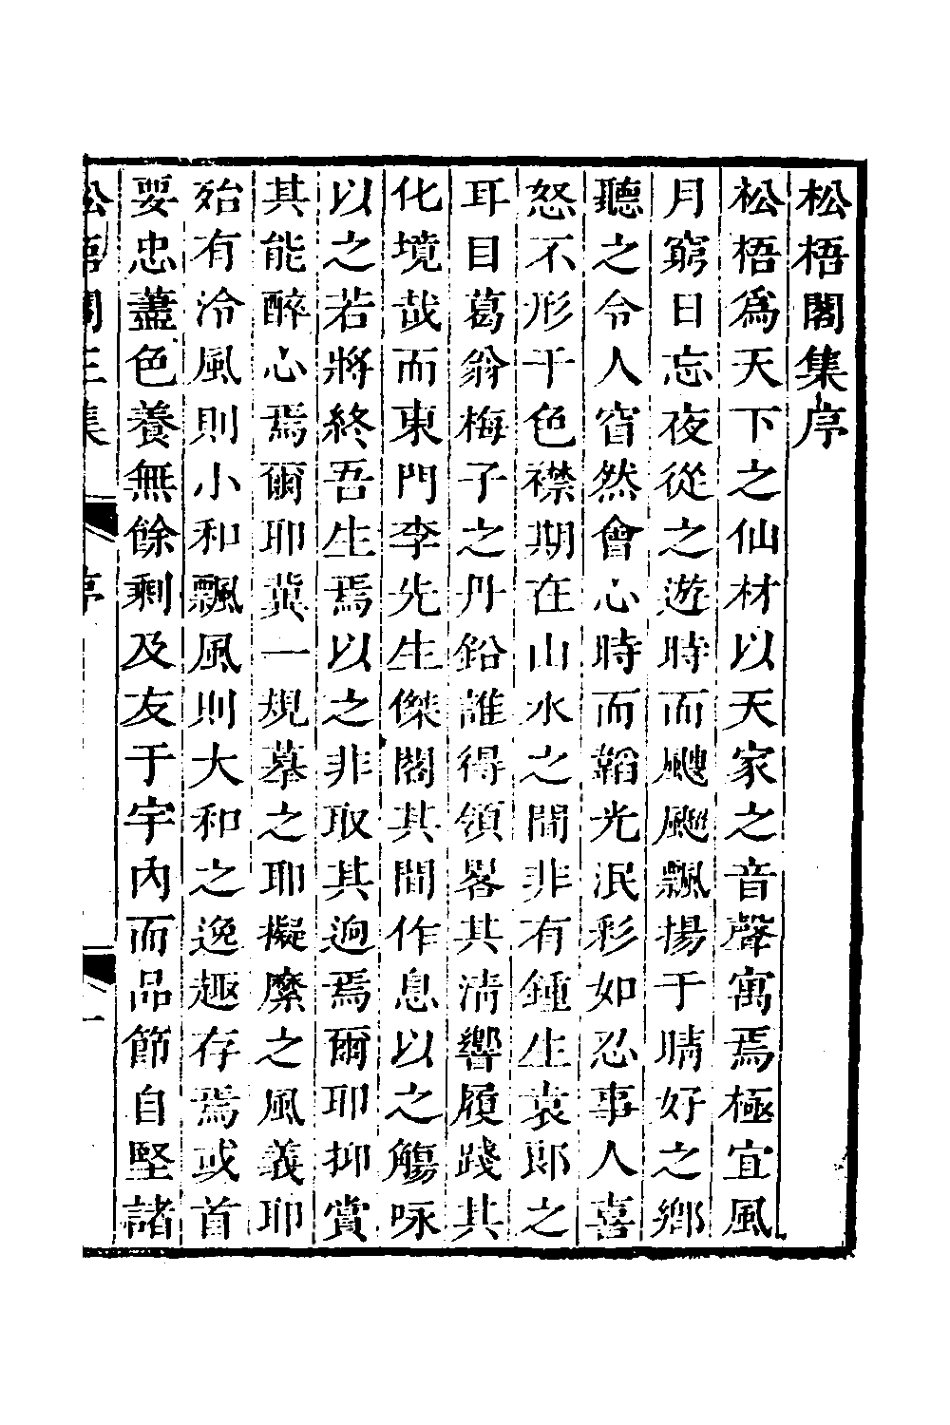 松梧閣集序
松梧爲天下之仙材以天家之音聲寓焉極宜風
月窮日忘夜從之遊時而颼飀飄揚于晴好之鄉
聽之令人窅然會心時而韜光泯彩如忍事人喜
怒不形干色襟期在山水之間非有鍾生袁郎之
耳目葛翁梅子之丹鉛誰得領畧其清響履踐其
化境哉而東門李先生傑閣其間作息以之觴咏
以之若將終吾生焉以之非取其逈焉爾耶抑賞
其能醉心焉爾耶冀一規摹之耶擬縻之風義耶
殆有泠風則小和飄風則大和之逸趣存焉或首
要忠藎色養無餘剩及友于宇內而品節自堅諸
松梧閣三集 序 一